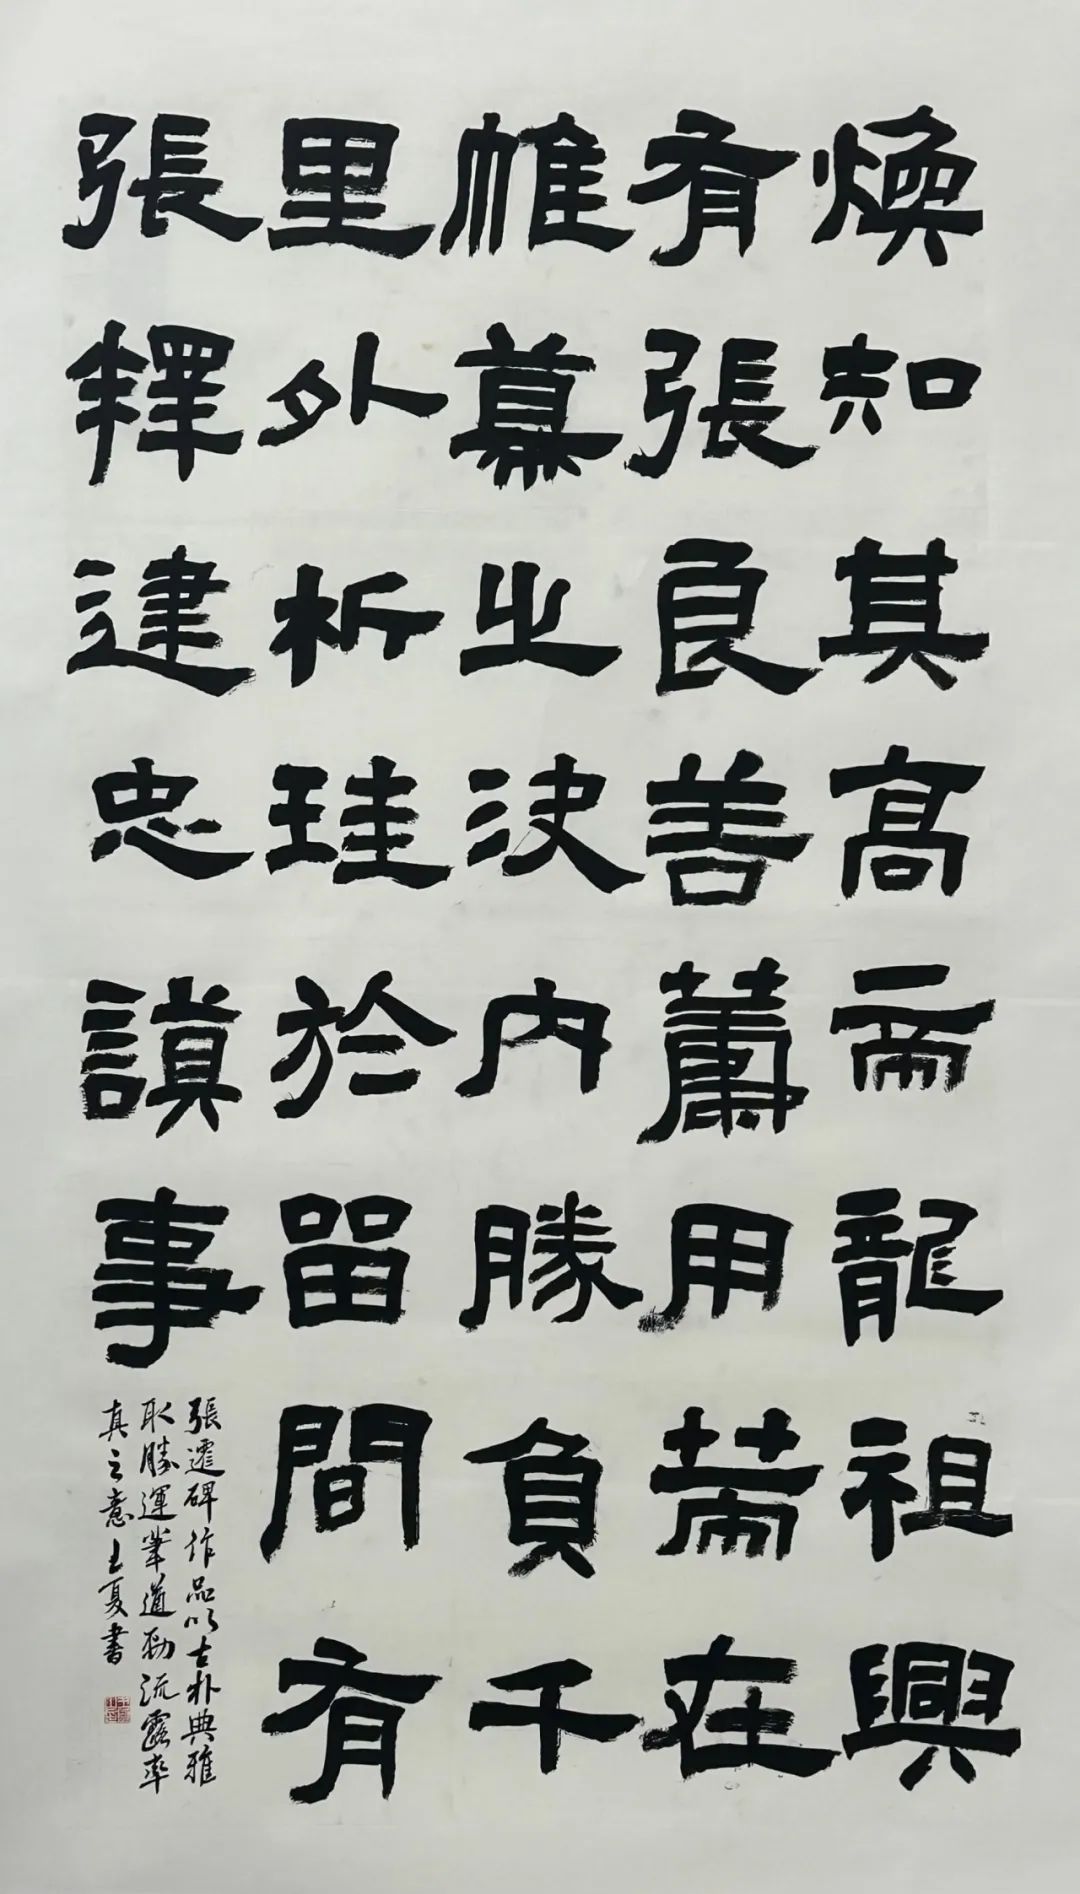 煥知其高帝龍祖興
有張良善薦用荋在
帷幕之決內勝負千
里外析珪於留間有
張釋建忠謨事
張遷碑作品以古朴典雅
取勝運筆遒勁流露率
真之意 王夏書